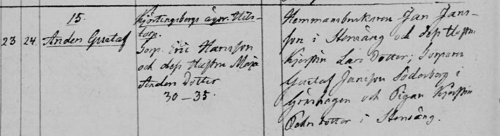 15.
23 24 Anders Gustaf
Kjortingsbergs ägor. Nils-
torp.
Torp. Eric Hansson
och dess Hustru Maja
Anders dotter
30 – 35.
Hemmansbrukaren Jan Jans-
son i Stensäng och dess Hustru
Kjerstin Lars dotter; Torparen
Gustaf Jansson Söderberg i
Grönhagen och Pigan Kjerstin
Pehrs dotter i Stensäng.